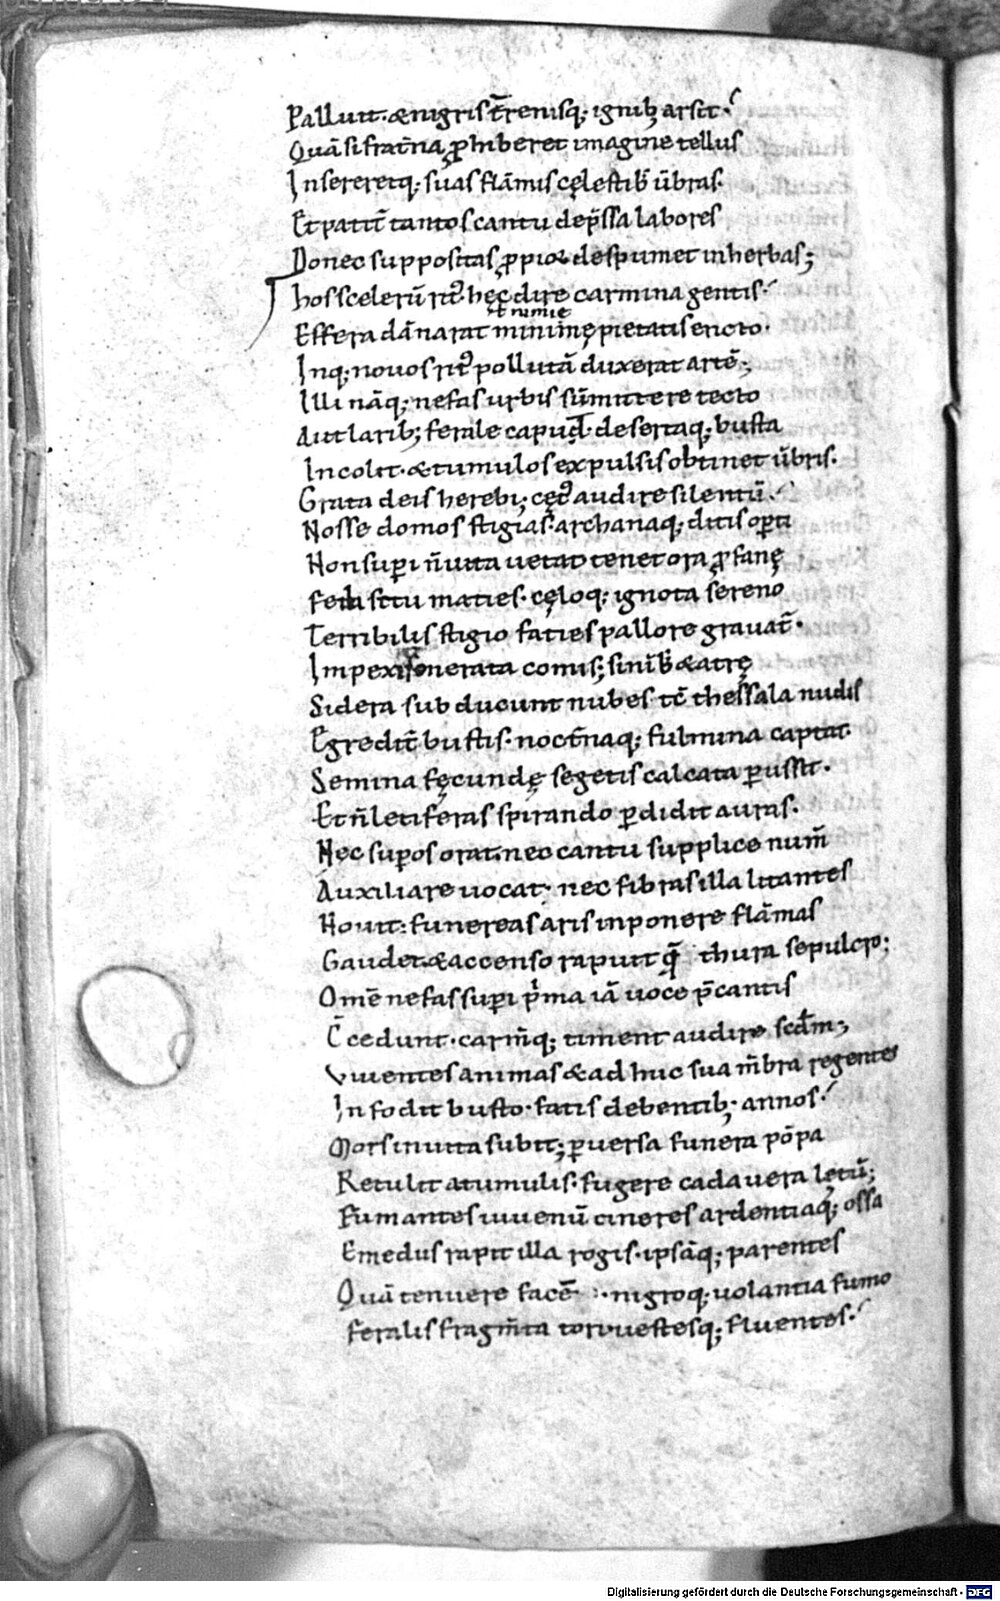 Palluit. & nigris t̄renisq; ignib; arsit.
Quā si frat̄na ꝓhiberet imagine tellus
Insereretq; suas flāmis cęlestib; ūbras.
Et patit̄ tantos cantu dep̄ssa labores
Donec suppositas ꝓpior despumet in herbas;
hos scelerū rit᷒ hęc dire carmina gentis.
ł nimię
Effera dānarat minimę pietatis encto.
Inq; novos rit᷒ pollutā duxerat artē;
Illi nāq; nefas urbis sūmittere tecto
Aut larib; ferale capud. desertaq; busta
Incolit. & tumulos expulsis obtinet ūbris.
Grata deis herebi; cęt᷒ audire silentū.
Nosse domos stigias. archanaq; ditis op̲ti
Non sup̲i n̄ uita uetat tenet ora ꝓfanę
Feda situ maties. cęloq; ignota sereno
Terribilis stigio faties pallore grauat̄.
Impexis onerata comis; si nīb; & atrę
Sidera subducunt nubes tc̄ thessala nudis
Egredit̄ bustis. noct̄naq; fulmina captat.
Semina fęcundę segetis calcata p̲ussit.
Et n̄ letiferas spirando p̲didit auras.
Nec sup̲os orat. nec cantu supplice num̄
Auxiliare uocat; nec fibras illa litantes
Nouit: funereas aris inponere flāmas
Gaudet. & accenso rapuit q̄ thura sepulcro;
Omē nefas sup̲i p̄ma iā uoce p̄cantis
C̄cedunt. carm̄q; timent audire scd̄m;
Viuentes animas & ad huc sua m̄bra regentes
Infodit busto. fatis debentib; annos.
Mors inuita subit; p̲uersa funera pōpa
Retulit a tumulis. fugere cadauera lętū;
Fumantes iuuenū cineres ardentiaq; ossa
E medus rapit illa rogis. ipsāq; parentes
Quā tenuere facē :. nigroq; uolantia fumo
Feralis fragm̄ta tori uestesq; fluentes.
Digitalisierung gefördert durch die Deutsche Forschungsgemeinschaft - DFG